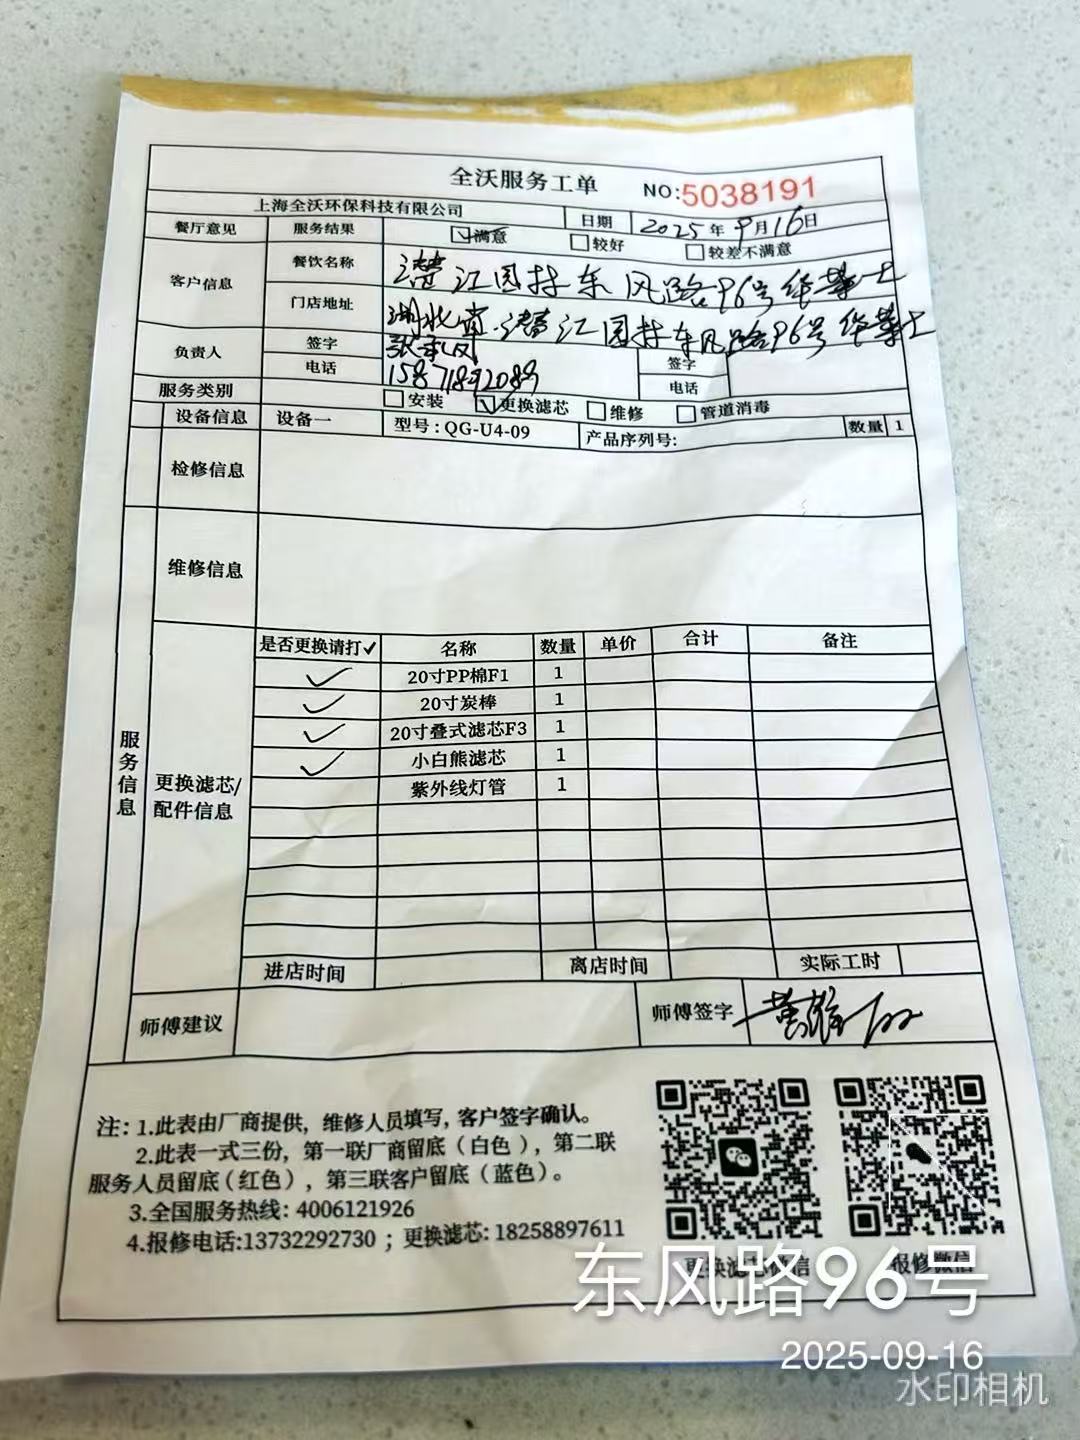 全沃服务工单 NO:5038191
上海全沃环保科技有限公司 日期 2025年9月16日
餐厅意见 服务结果 ☑满意 □较好 □较差不满意
客户信息 餐饮名称 潜江园林东风路96号华莱士
门店地址 湖北省潜江园林东风路96号华莱士
负责人 签字 签字
电话 15871892089 电话
服务类别 □安装 ☑更换滤芯 □维修 □管道消毒
设备信息 设备一 型号:QG-U4-09 产品序列号: 数量 1
检修信息
维修信息
服务信息
更换滤芯/配件信息
是否更换请打✓ 名称 数量 单价 合计 备注
✓ 20寸PP棉F1 1
✓ 20寸炭棒 1
✓ 20寸叠式滤芯F3 1
✓ 小白熊滤芯 1
紫外线灯管 1
进店时间 离店时间 实际工时
师傅建议 师傅签字
注: 1.此表由厂商提供，维修人员填写，客户签字确认。
2.此表一式三份，第一联厂商留底（白色），第二联
服务人员留底（红色），第三联客户留底（蓝色）。
3.全国服务热线: 4006121926
4.报修电话:13732292730 ；更换滤芯: 18258897611
更换滤芯微信 报修微信
东风路96号
2025-09-16
水印相机